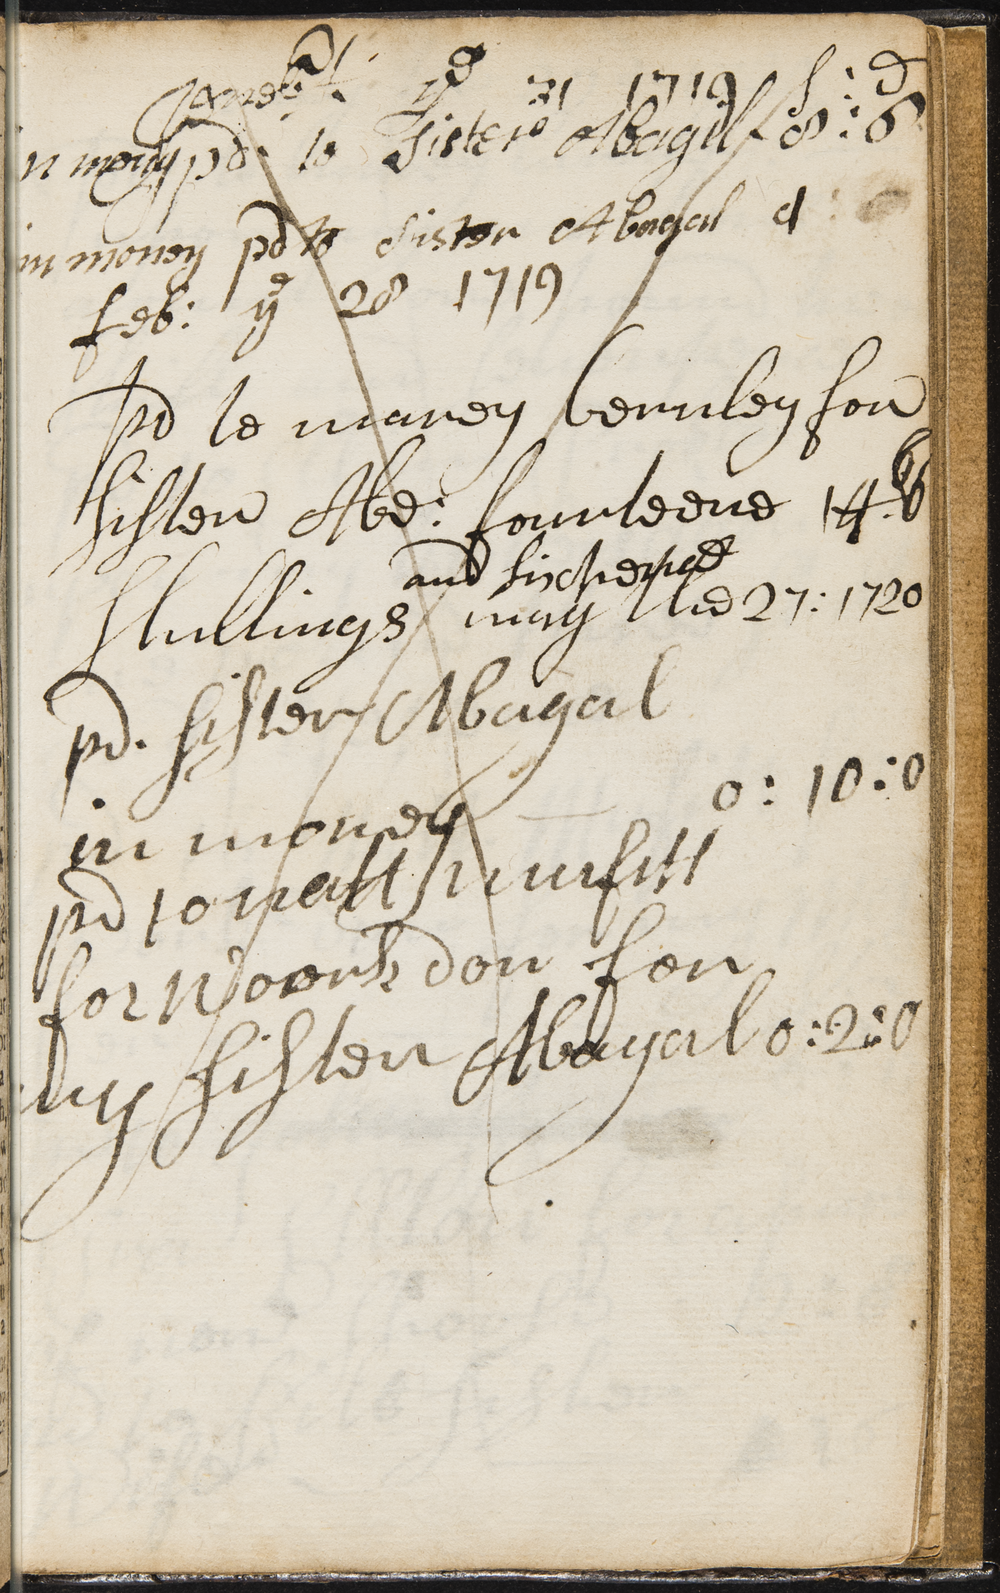 ye 31 1719 s: d
in mony pd to Sister Abagil 8: 6
in money pd to Sister Abagal
feb: ye 28 1719
pd to marey bernley for
sister Abe: fourteene 14:6
and sixpence
shillings may the 27: 1720
pd. sister Abagal
in money 0: 10: 0
pd to matt
for woork don for
my sister Abagal 0: 2: 0